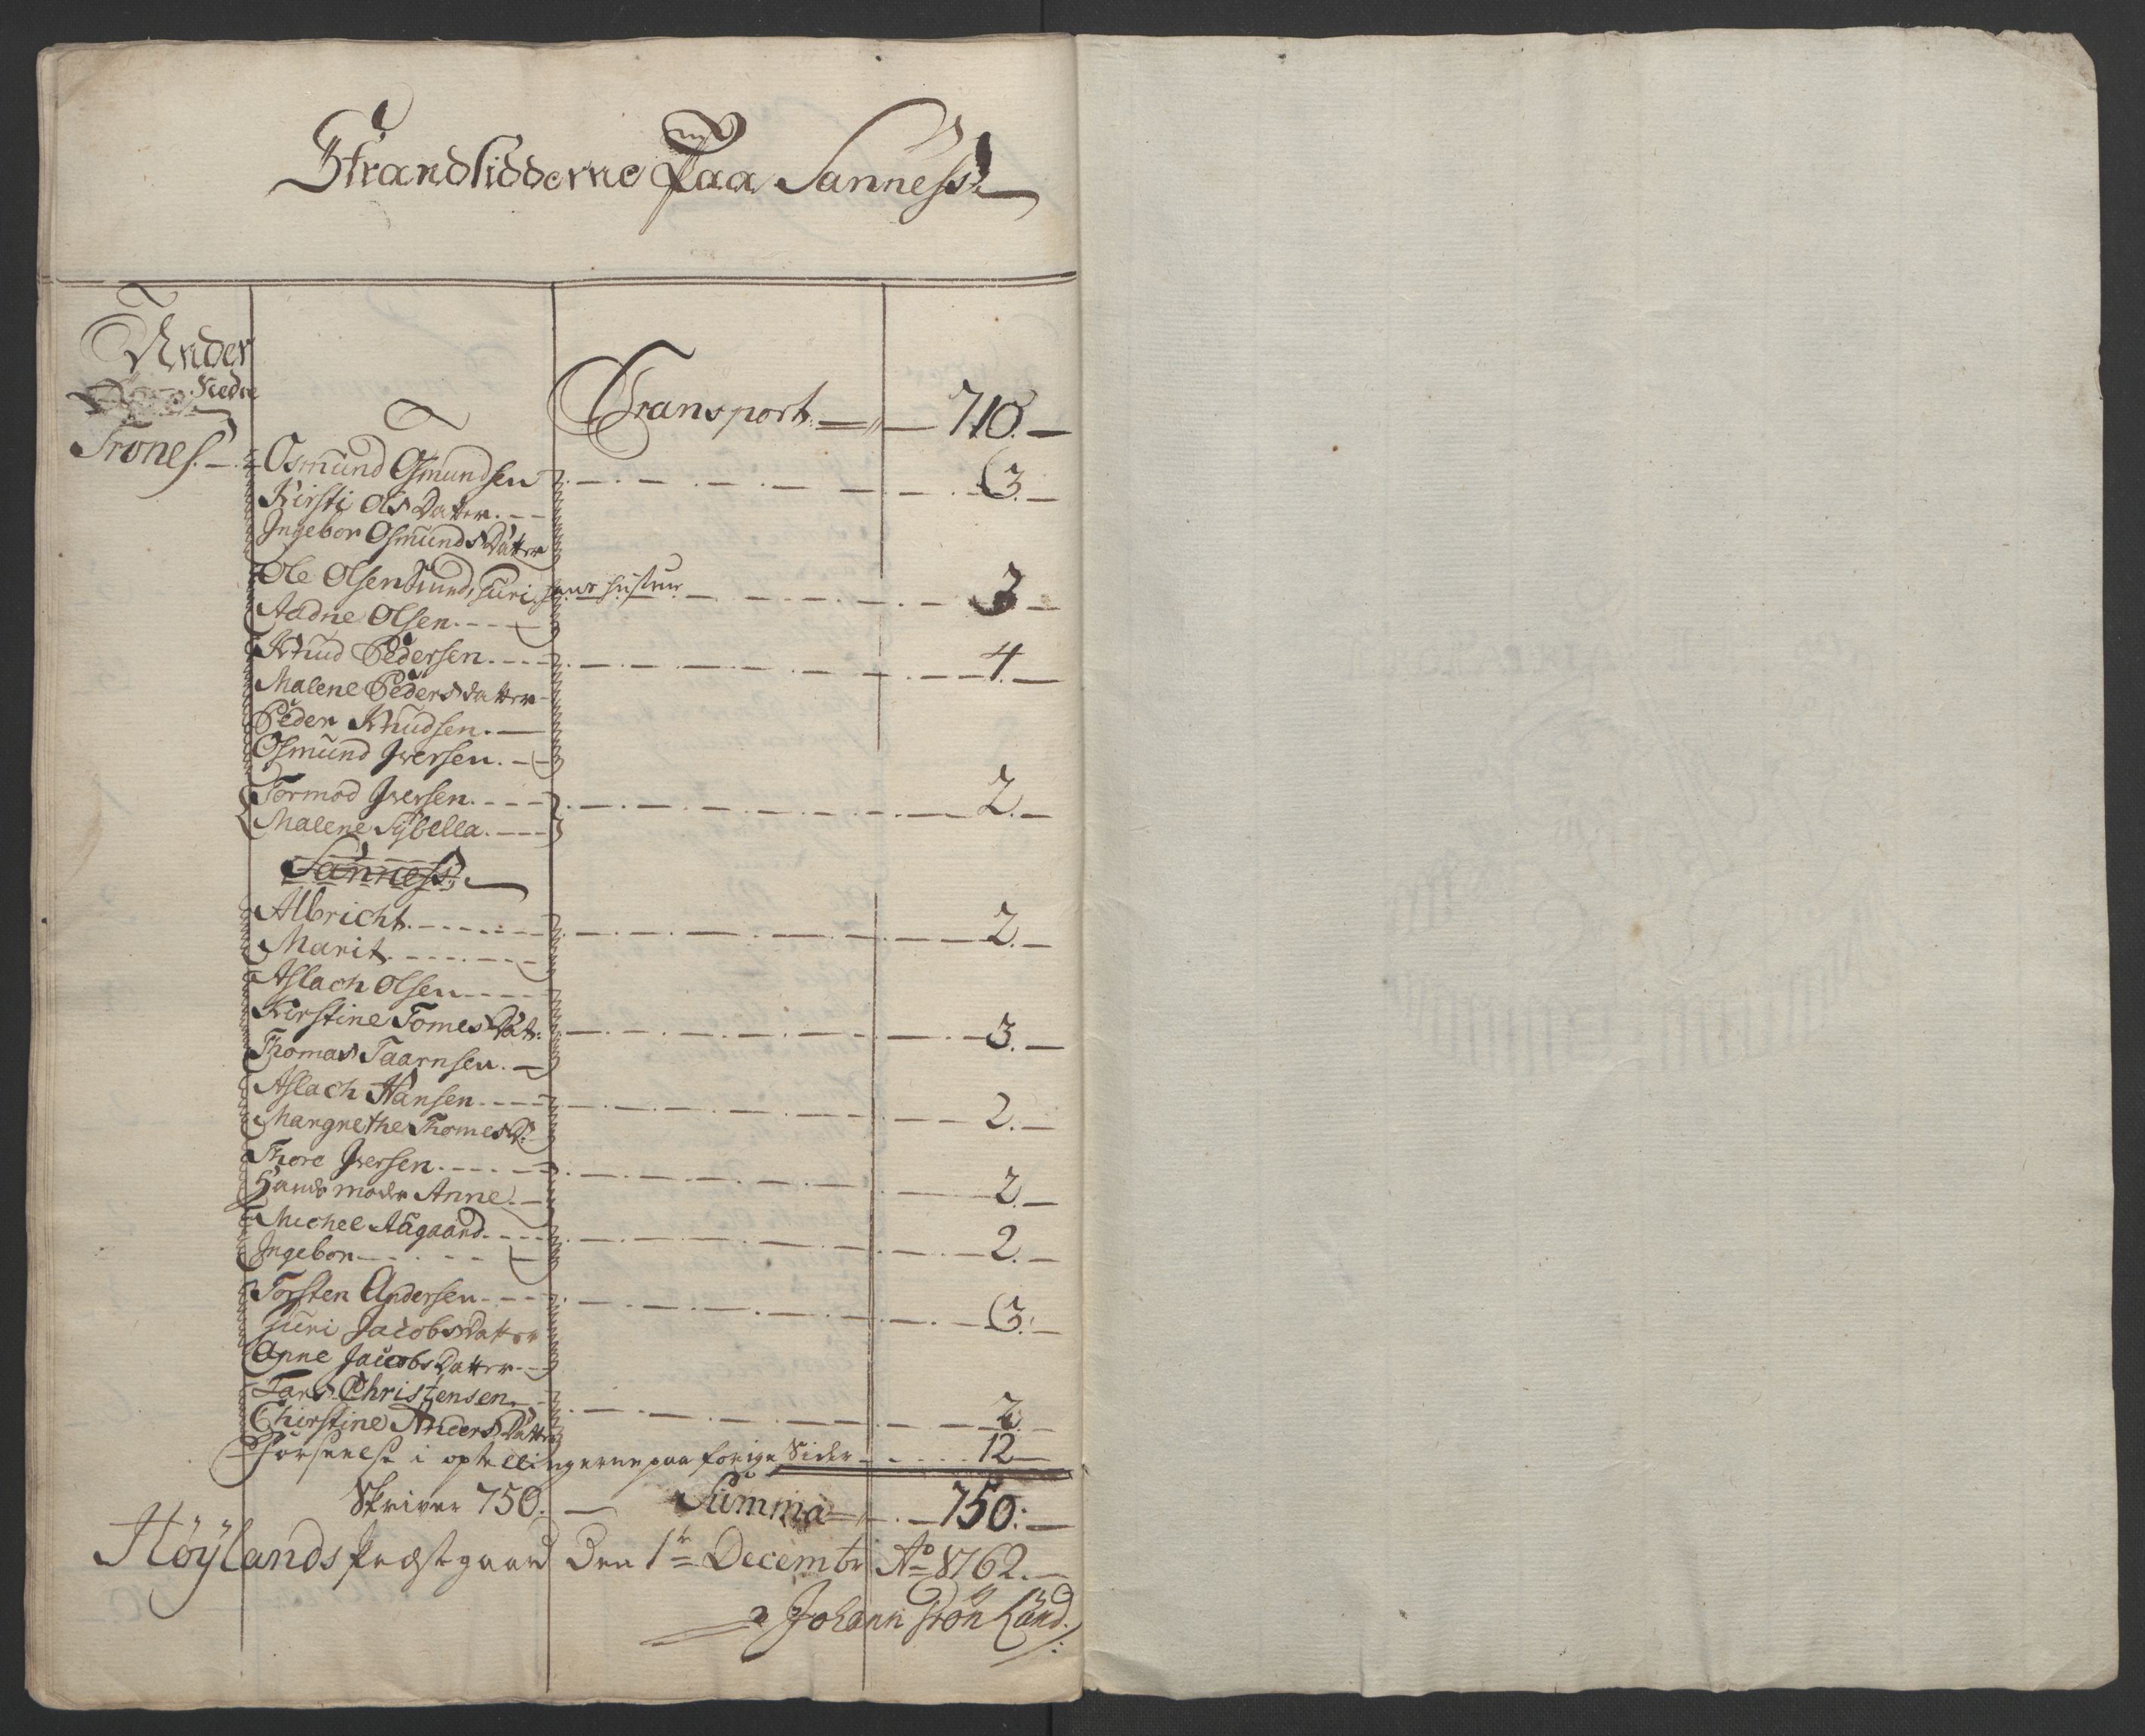 Strandsidderne Paa Sanness
Under
Nedre
Trones.
Transport 710.
Osmund Osmundsen 3.
Kirsti Ols Datter.
Ingebor Osmunds Datter
Ole Olsen Lund, Guri, hans hustrue 3
Aadne Olsen.
Knud Pedersen. 4.
Malene Peders datter
Peder Knudsen.
Osmund Iversen.
Tormod Iversen. 2.
Malene Sÿbella.
Sanness.
Albricht. 2.
Marit.
Aslach Olsen
Kirstine Tomes Dat: 3.
Thomas Taarnsen.
Aslach Hansen 2.
Margrethe Thomes D:
Thore Iversen. 2.
Hands moder Anne.
Michel Aagaard 2.
Ingebor
Torsten Andersen 3.
Guri Jacobs Datter
Anne Jacobs Datter
Lars Christensen. 2.
Chirstine Anders Datter
Forseelse i optellingerne paa forige Sider 12
Skriver 750. Summa 750.
Höÿlands Præstgaard Den 1te Decembr Ao 1762.
Johann Grön Lund.